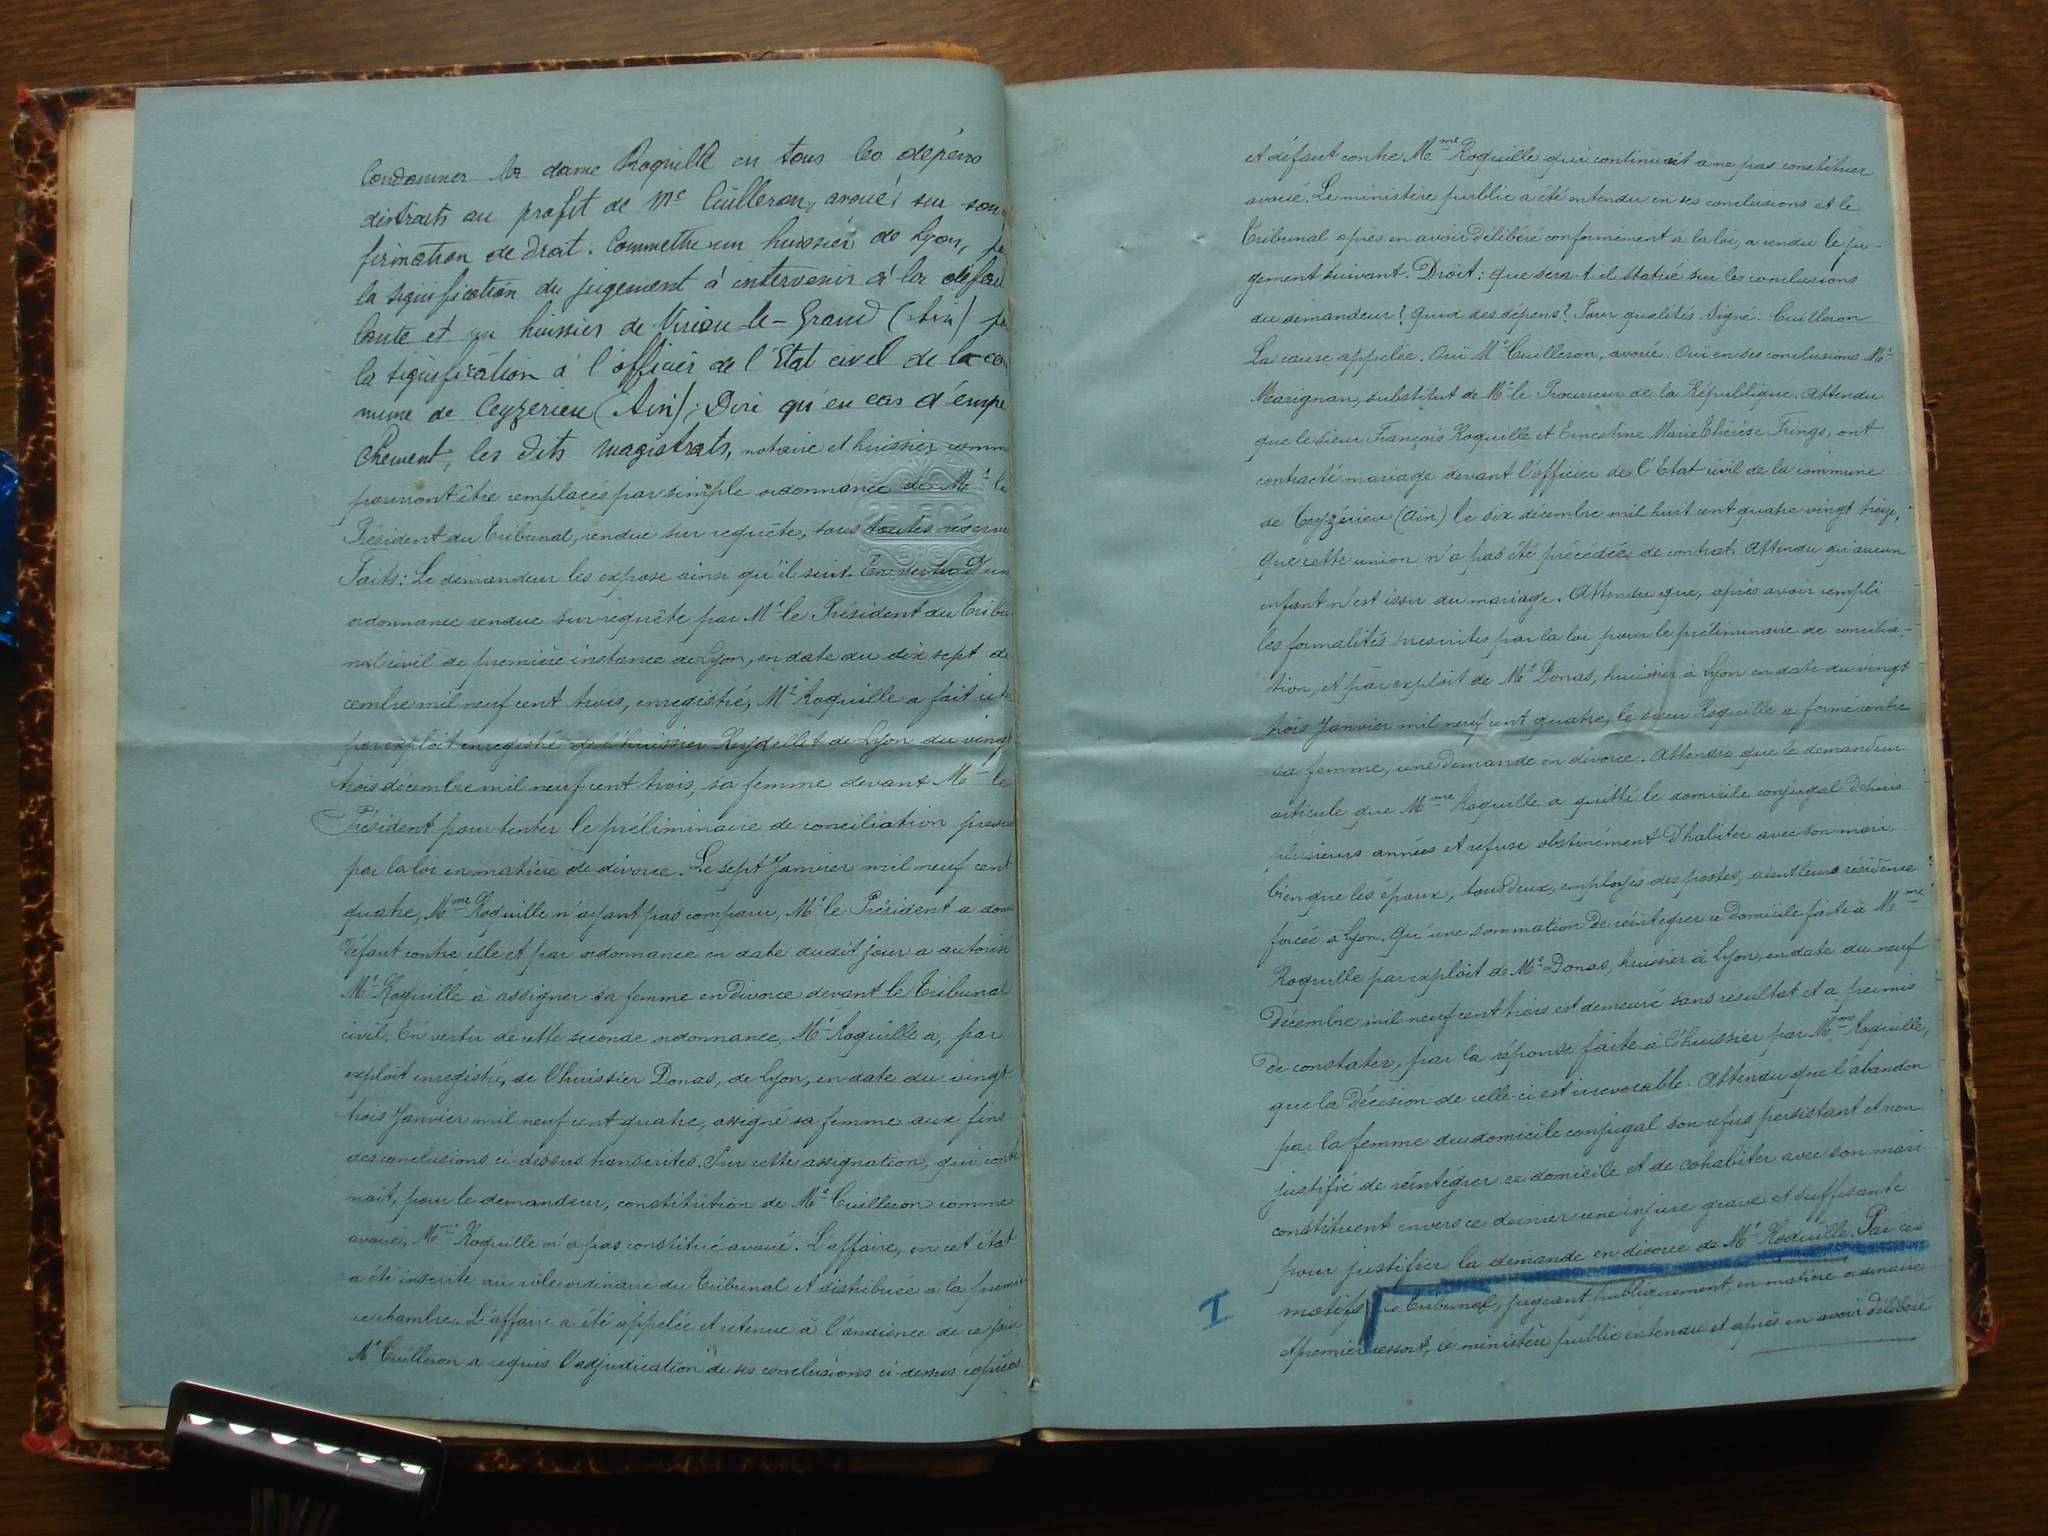 Condamner la dame Roquille en tous les dépens
distraits au profit de Me Cuilleron, avoué, sur son
firmation de droit. Commettre un huissier de Lyon, po
la signification du jugement à intervenir à la défail
lante et un huissier de Virieu-le-Grand (Ain) po
la signification à l'officier de l'Etat civil de la com
mune de Ceyzerieu (Ain); Dire qu'en cas d'empê
chement, les dits magistrats, notaire et huissier comm
pourront être remplacés par simple ordonnance de Mr le
Président du Tribunal, rendue sur requête, sous toutes réserves
Faits: Le demandeur les expose ainsi qu'il suit. En vertu d'un
ordonnance rendue sur requête par Mr le Président du Tribu
nal civil de première instance de Lyon, en date du dix sept dé
cembre mil neuf cent trois, enregistré, Mr Roquille a fait citer
par exploit enregistré de l'huissier Reydellet de Lyon du vingt
trois décembre mil neuf cent trois, sa femme devant Mr le
Président pour tenter le préliminaire de conciliation prescr
par la loi en matière de divorce. Le sept Janvier mil neuf cent
quatre, Mme Roquille n'ayant pas comparu, Mr le Président a don
défaut contre elle et par ordonnance en date dudit jour a autorisé
Mr Roquille à assigner sa femme en divorce devant le Tribunal
civil. En vertu de cette seconde ordonnance, Mr Roquille a, par
exploit enregistré, de l'huissier Donas, de Lyon, en date du vingt
trois Janvier mil neuf cent quatre, assigné sa femme aux fins
des conclusions ci-dessus transcrites. Sur cette assignation, qui conte
nait, pour le demandeur, constitution de Me Cuilleron comme
avoué, Mme Roquille n'a pas constitué avoué. L'affaire, en cet état
a été inscrite au rôle ordinaire du Tribunal et distribuée à la premiè
re chambre. L'affaire a été appelée et retenue à l'audience de ce jour
Me Cuilleron a requis l'adjudication de ses conclusions ci-dessus copiées
et défaut contre Mme Roquille qui continuait à ne pas constituer
avoué. Le ministère public a été entendu en ses conclusions et le
Tribunal après en avoir délibéré conformément à la loi, a rendu le ju-
gement suivant. Droit: Que sera-t-il statué sur les conclusions
du demandeur? Quid des dépens? Pour qualités. Signé: Cuilleron
La cause appelée. Ouï Me Cuilleron, avoué. Ouï en ses conclusions Mr
Marignan, substitut de Mr le Procureur de la République. Attendu
que le sieur François Roquille et Ernestine Marie Thérèse Frings, ont
contracté mariage devant l'officier de l'Etat civil de la commune
de Ceyzérieu (Ain) le six décembre mil huit cent quatre vingt treize,
Que cette union n'a pas été précédée de contrat. Attendu qu'aucun
enfant n'est issu du mariage. Attendu que, après avoir rempli
les formalités prescrites par la loi pour le préliminaire de concilia-
tion, et par exploit de Me Donas, huissier à Lyon en date du vingt
trois Janvier mil neuf cent quatre, le sieur Roquille a formé contre
sa femme, une demande en divorce. Attendu que le demandeur
articule que Mme Roquille a quitté le domicile conjugal depuis
plusieurs années et refuse obstinément d'habiter avec son mari,
bien que les époux, tous deux, employés des postes, aient leur résidence
forcée à Lyon. Qu'une sommation de réintégrer ce domicile faite à Mme
Roquille par exploit de Me Donas, huissier à Lyon, en date du neuf
Décembre mil neuf cent trois est demeuré sans résultat et a permis
de constater, par la réponse faite à l'huissier par Mme Roquille,
que la décision de celle-ci est irrévocable. Attendu que l'abandon
par la femme du domicile conjugal son refus persistant et non
justifié de réintégrer ce domicile et de cohabiter avec son mari
constituent envers ce dernier une injure grave et suffisante
pour justifier la demande en divorce de Mr Roquille. Par ces
motifs, le Tribunal, jugeant publiquement, en matière ordinaire
et premier ressort, le ministère public entendu et après en avoir délibéré
I